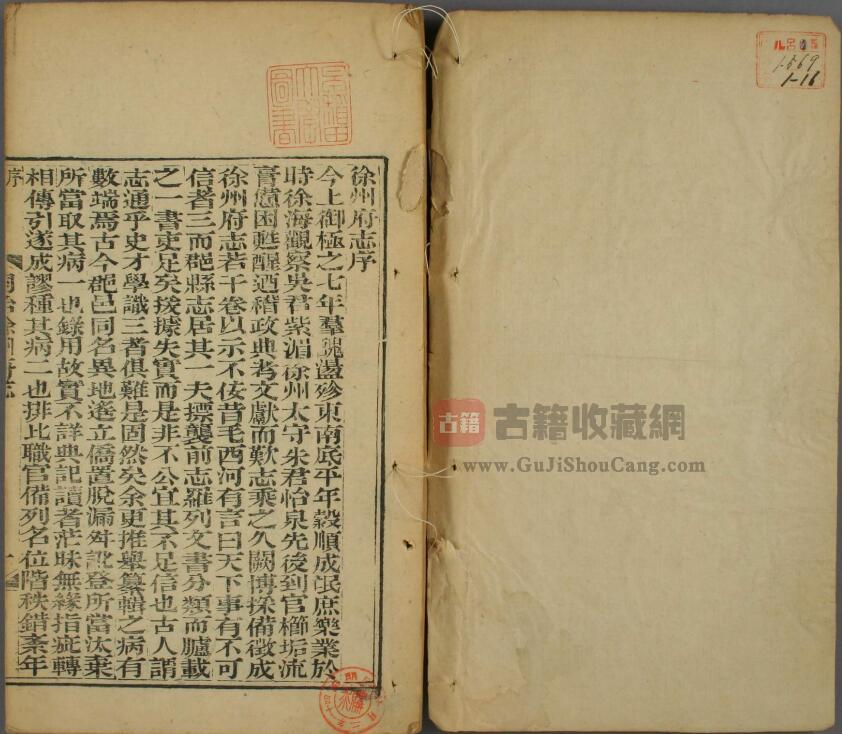 徐州府志序
今上御極之七年羣醜盪殄東南底平年穀順成氓庶樂業於
時徐海觀察吳君紫湄徐州太守朱君怡泉先後到官櫛垢流
膏憊困甦醒迺稽政典考文獻而歎志乘之久闕博採備徵成
徐州府志若干卷以示不佞昔毛西河有言曰天下事有不可
信者三而郡縣志居其一夫摽襲前志羅列文書分類而臚載
之一書吏足矣拔據失實而是非不公宜其不足信也古人謂
志通乎史才學識三者俱難是固然矣余更推舉纂輯之病有
數端焉古今郡邑同名異地遙立僑置脫漏舛訛登所當汰棄
所當取其病一也錄用故實不詳典記讀者茫昧無緣指疵轉
相傳引遂成謬種其病二也排比職官備列名位階秩錯紊年
序
同治徐州府志
一
古籍
古籍收藏網
www.GuJiShouCang.com
1569
1-16